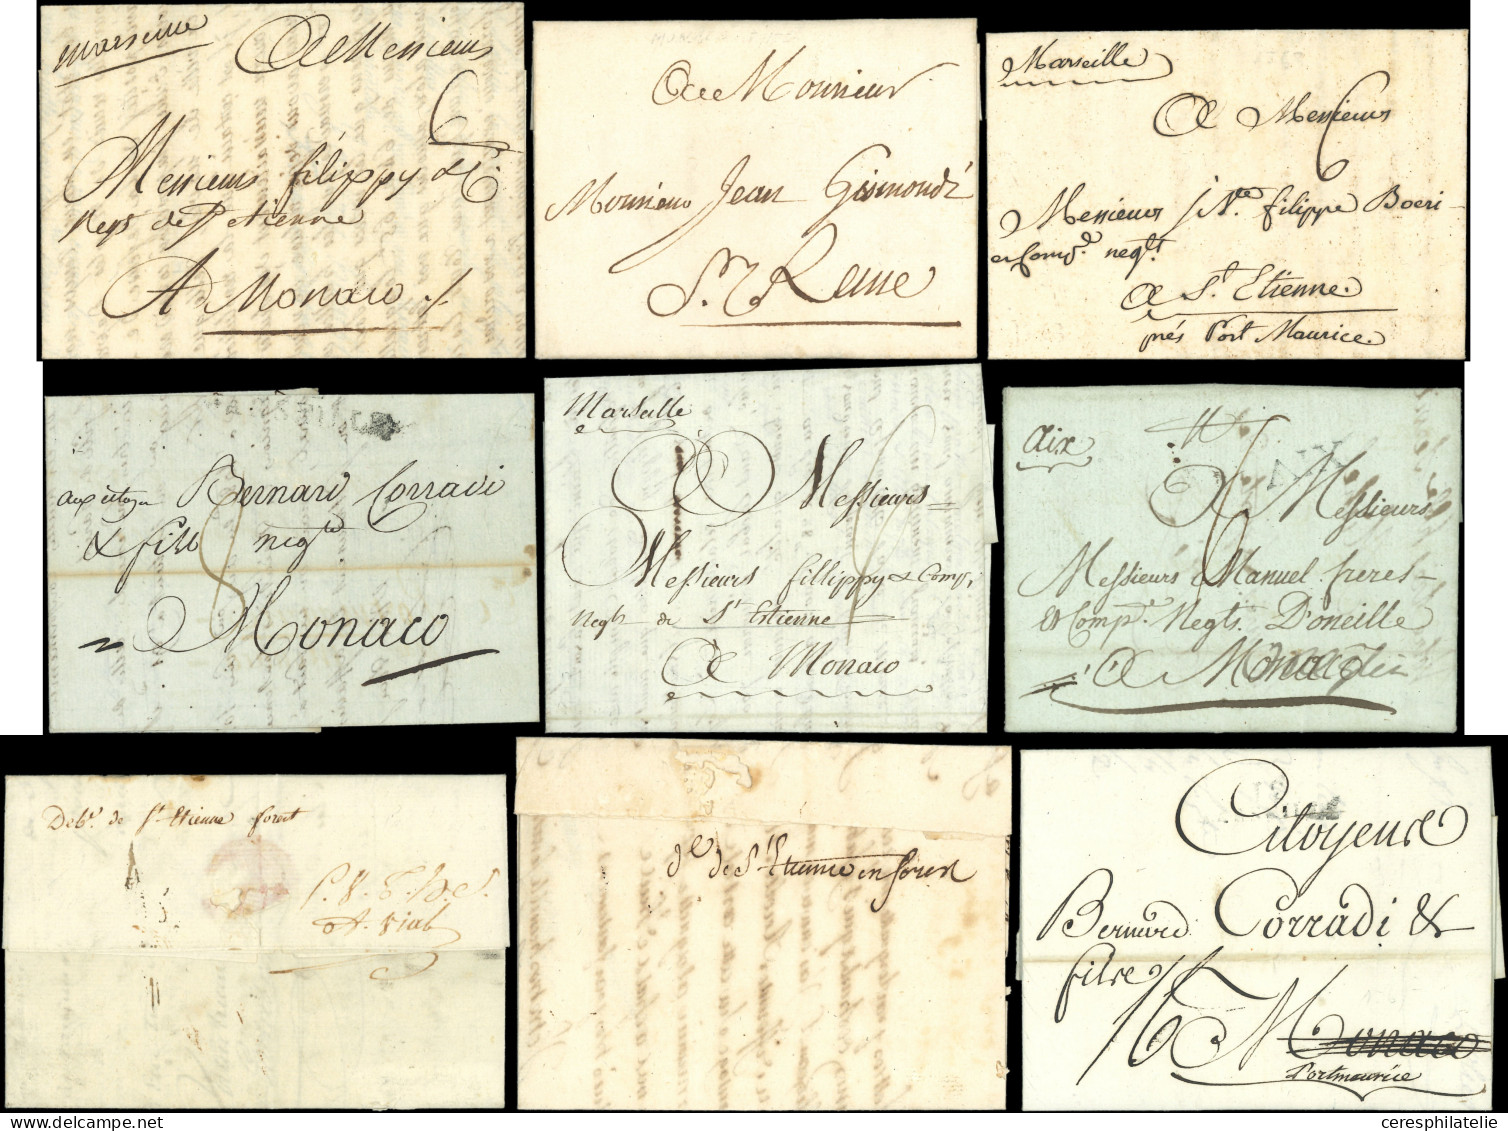 marseille
A Messieurs
6
Messieurs filippy & C.
Negts de St etienne
A Monaco
A Monsieur
Monsieur Jean Gismondi
St Reme
Marseille
A Messieurs
6
Messieurs J. Bte filippe Boeri
et Compe. negts.
A St. Etienne.
prés Port Maurice.
aux citoyen Bernard Corradi
& fils negts
8
Monaco
Marseille
A Messieurs
Messieurs fillippy & Comp.
Negts de St Etienne
A Monaco
Aix
A Messieurs
Messieurs Manuel freres
& Compe. Negts. D'oneille
A Monaco
Deb.é de St. Etienne foret
dé de St Etienne en forest
Citoyens
Bernard Corradi &
fils
16
Monaco
Portmaurice
ceresphilatelie